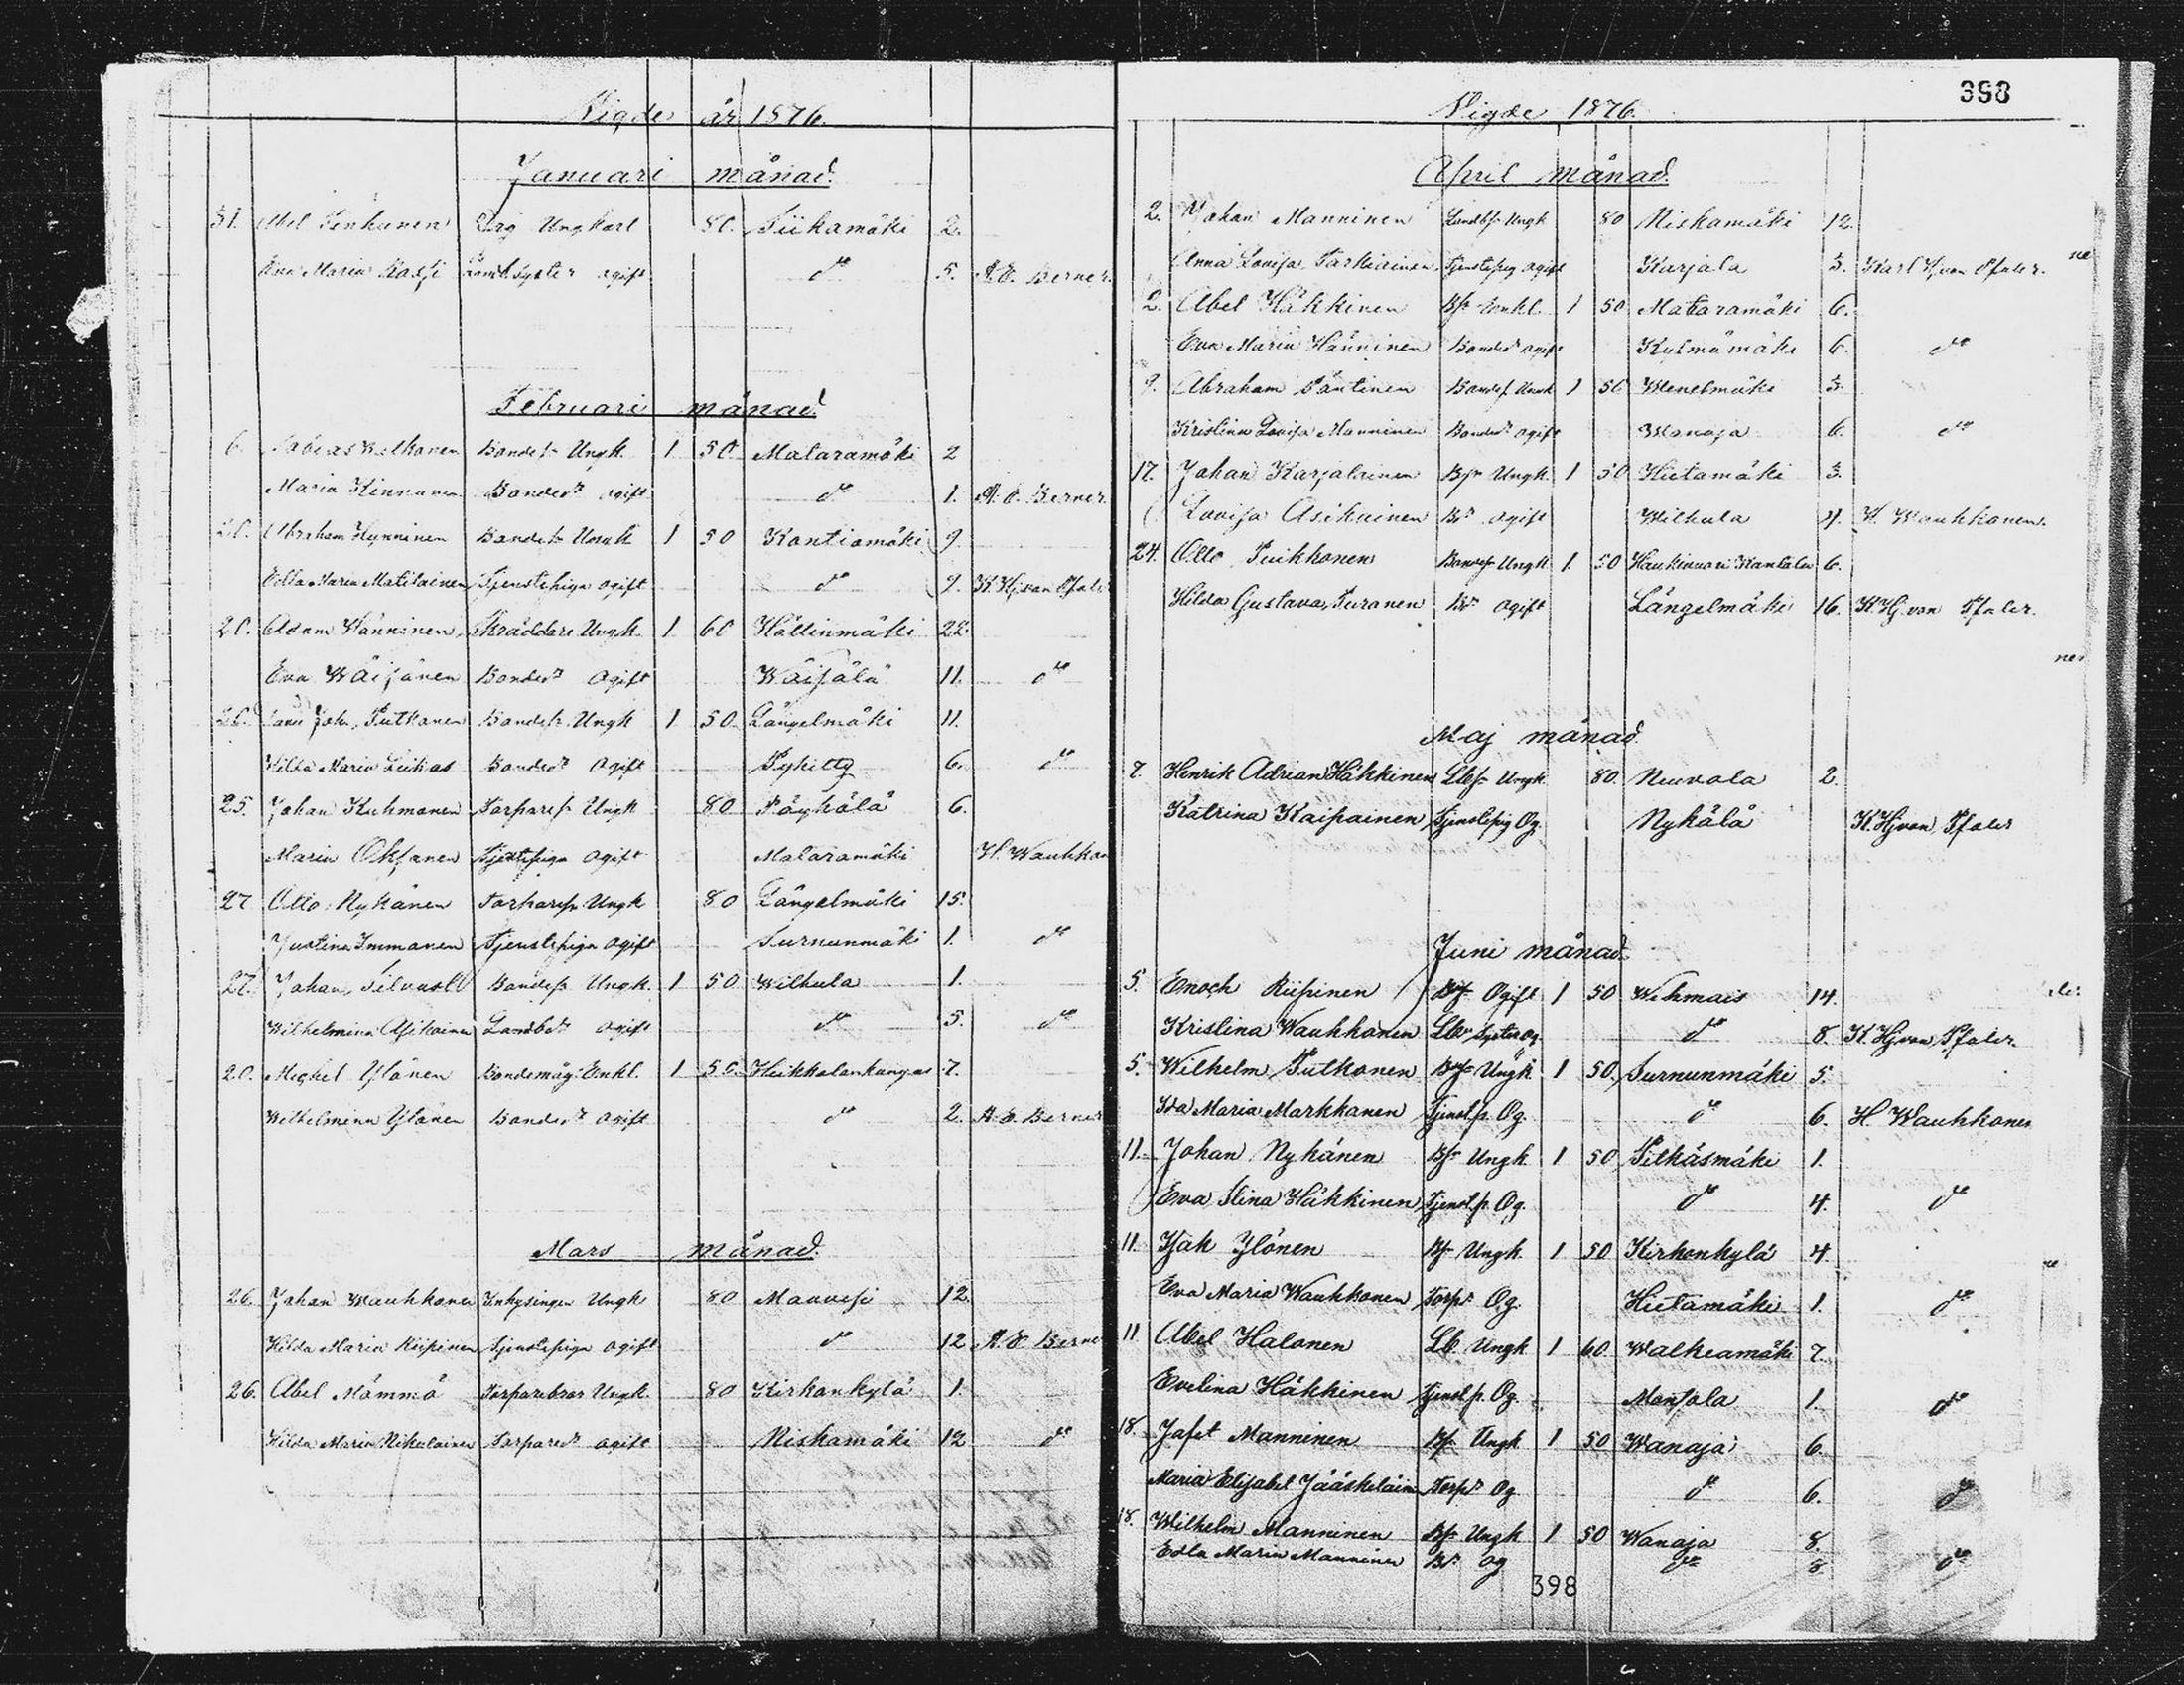 Vigde år 1876.
Januari månad.
31. Abel Venhunen Ungkarl 80. Tiikamäki 2.
Eva Maria ogift do 5. A. E. Berner.
Februari månad
6. Ungk. 1 50 Mataramäki 2
Maria Kinnunen Bonded:r ogift do 1. A. E. Berner.
20. Abraham Hynninen Bondes. Ungk 1 50 Kontiomäki 9.
Edla Maria Matilainen Tjenstepiga ogift do 9. K. Hj. von Pfaler
20. Adam Hänninen Skräddare Ungk. 1 60 Hällinmäki 22.
Eva Wäisänen Bonded:r Ogift Wäisälä 11. do
26. Joh. Putkonen Bondes. Ungk 1 50 Längelmäki 11.
Hilda Maria Liikas Bonded:r Ogift Pykitty 6. do
25. Johan Kuhmonen Torpares. Ungk 80 Pöyhölä 6.
Maria Oksanen Tjenstepiga Ogift Mataramäki H. Wauhkon
27 Otto Nykänen Torpares. Ungk 80 Längelmäki 15.
Justina Immonen Tjenstepiga Ogift Surnunmäki 1. do
27. Johan Silvast Bondes. Ungk. 1 50 Wilhula 1.
Wilhelmina Asikainen Landbd:r ogift do 5. do
20. Michel Ylönen Bondemåg Enkl. 1 50 Heikkolankangas 7.
Wilhelmina Ylönen Bonded:r ogift do 2. A. E. Berner
Mars månad.
26. Johan Wauhkonen Inhysingen Ungk 80 Mauvesi 12.
Hilda Maria Riipinen Tjenstepiga ogift do 12 A. E. Berner
26. Abel Mämmö Torparebror Ungk. 80 Kirkonkylä 1.
Hilda Maria Nikulainen Torpared:r ogift Niskamäki 12 do
398
Vigde 1876.
April månad.
2. Johan Manninen Landbs. Ungk 80 Niskamäki 12.
Anna Lovisa Tarkiainen Tjenstepig ogift Karjala 3. Karl Hj. von Pfaler.
2. Abel Häkkinen Bs. Enkl. 1 50 Mataramäki 6.
Eva Maria Hänninen Bonded:r ogift Kylmämäki 6. do
9. Abraham Päntinen Bondes. Ungk 1 50 Wenetmäki 3.
Kristina Lovisa Manninen Bonded:r ogift Wanaja 6. do
17. Johan Karjalainen Bs. Ungk. 1 50 Hietamäki 3.
Lovisa Asikainen Bd:r ogift Wilhula 4. H. Wauhkonen.
24. Otto Puikkonen Bondes. Ungk 1. 50 Haukivuori Kantala 6.
Hilda Gustava Turanen Bd:r ogift Längelmäki 16. K. Hj. von Pfaler.
Maj månad
7. Henrik Adrian Häkkinen Lbs. Ungk 80. Neuvola 2.
Katrina Kaipainen Tjenstepig Og. Nykälä K. Hj. von Pfaler
Juni månad
5. Enoch Riipinen Bs. Ogift 1 50 Wehmais 14.
Kristina Wauhkonen Lbs. Syster Og. do 8. K. Hj. von Pfaler.
5. Wilhelm Putkonen Bs. Ungk 1 50. Surnunmäki 5.
Ida Maria Markkanen Tjenst.p. Og. do 6. H. Wauhkonen
11. Johan Nykänen Bs. Ungk 1 50 Pitkäsmäki 1.
Eva Stina Häkkinen Tjenst.p. Og. do 4. do
11. Isak Ylönen Bs. Ungk 1 50 Kirkonkylä 4.
Eva Maria Wauhkonen Torpd:r Og. Hietamäki 1. do
11 Abel Halonen Lb. Ungk 1 60 Walkeamäki 7.
Evelina Häkkinen Tjenst.p. Og. Montola 1. do
18. Jafet Manninen Bs. Ungk 1 50 Wanaja 6.
Maria Elisabet Jääskeläin Torpd:r Og do 6. do
18. Wilhelm Manninen Bs. Ungk 1 50 Wanaja 8.
Edla Maria Manninen Bd:r Og do 8 do
398